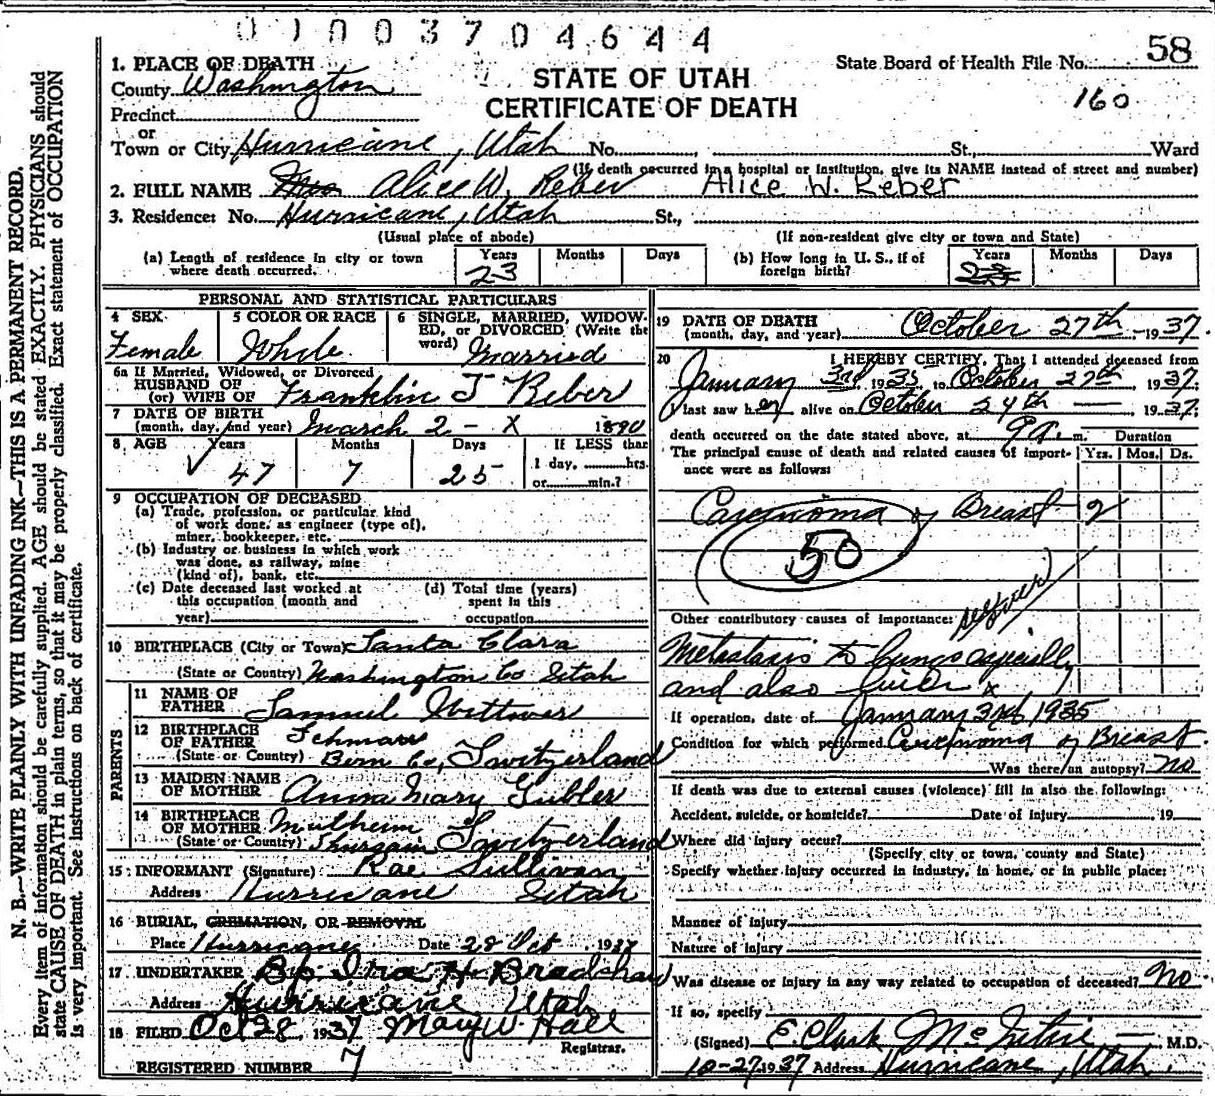 0 1 0 0 3 7 0 4 6 4 4
N. B.—WRITE PLAINLY WITH UNFADING INK—THIS IS A PERMANENT RECORD.
Every item of information should be carefully supplied. AGE should be stated EXACTLY. PHYSICIANS should
state CAUSE OF DEATH in plain terms, so that it may be properly classified. Exact statement of OCCUPATION
is very important. See instructions on back of certificate.
State Board of Health File No. 58
160
STATE OF UTAH
CERTIFICATE OF DEATH
1. PLACE OF DEATH
County Washington
Precinct
or
Town or City Hurricane, Utah No. , St., Ward
(If death occurred in a hospital or institution, give its NAME instead of street and number)
2. FULL NAME Mrs Alice W. Reber Alice W. Reber
3. Residence: No. Hurricane, Utah St.,
(Usual place of abode) (If non-resident give city or town and State)
(a) Length of residence in city or town where death occurred. Years 23 Months Days
(b) How long in U. S., if of foreign birth? Years 23 Months Days
PERSONAL AND STATISTICAL PARTICULARS
4 SEX Female
5 COLOR OR RACE White
6 SINGLE, MARRIED, WIDOWED, or DIVORCED (Write the word) Married
6a If Married, Widowed, or Divorced
HUSBAND OF
(or) WIFE OF Franklin J Reber
7 DATE OF BIRTH
(month, day, and year) March 2 - X 1890
8. AGE Years 47 Months 7 Days 25 If LESS than
1 day, hrs.
or min.?
9 OCCUPATION OF DECEASED
(a) Trade, profession, or particular kind
of work done, as engineer (type of),
miner, bookkeeper, etc.
(b) Industry or business in which work
was done, as railway, mine
(kind of), bank, etc.
(c) Date deceased last worked at
this occupation (month and
year)
(d) Total time (years)
spent in this
occupation
10 BIRTHPLACE (City or Town) Santa Clara
(State or Country) Washington Co Utah
PARENTS
11 NAME OF
FATHER Samuel Wittwer
12 BIRTHPLACE
OF FATHER
(State or Country) Bern Co, Switzerland
13 MAIDEN NAME
OF MOTHER Anna Mary Gubler
14 BIRTHPLACE
OF MOTHER Mulheim
(State or Country) Switzerland
15 INFORMANT (Signature) Rae Sullivan
Address Hurricane Utah
16 BURIAL, CREMATION, OR REMOVAL
Place Hurricane Date 28 Oct, 1937
17 UNDERTAKER Bp. Ira H Bradshaw
Address Hurricane Utah
18 FILED Oct 28, 1937 Mary W. Hall
Registrar.
REGISTERED NUMBER 7
19 DATE OF DEATH
(month, day, and year) October 27th, 1937.
20 I HEREBY CERTIFY, That I attended deceased from
January 3rd 1935 to October 27th 1937
I last saw her alive on October 24th — 1937
death occurred on the date stated above, at 9 a. m.
The principal cause of death and related causes of importance were as follows:
Duration
Yrs. Mos. Ds.
Carcinoma of Breast 2
50
Other contributory causes of importance:
Metastasis to lungs especially
and also liver x
If operation, date of January 3rd 1935
Condition for which performed Carcinoma of Breast.
Was there an autopsy? no
If death was due to external causes (violence) fill in also the following:
Accident, suicide, or homicide? Date of injury , 19
Where did injury occur?
(Specify city or town, county and State)
Specify whether injury occurred in industry, in home, or in public place:
Manner of injury
Nature of injury
Was disease or injury in any way related to occupation of deceased? No
If so, specify
(Signed) E. Clark McIntire — M.D.
10-27 1937 Address Hurricane, Utah.